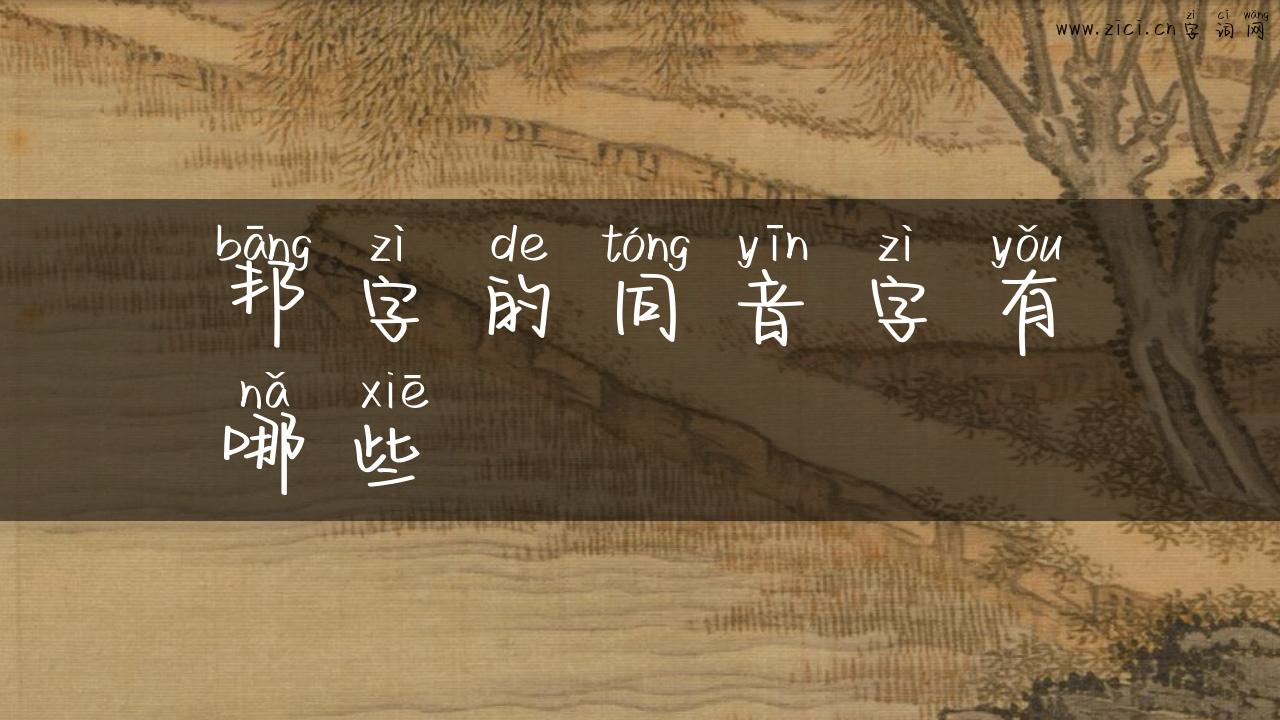 zì cí wǎng
www.zici.cn字词网
bāng zì de tóng yīn zì yǒu
邦字的同音字有
nǎ xiē
哪些